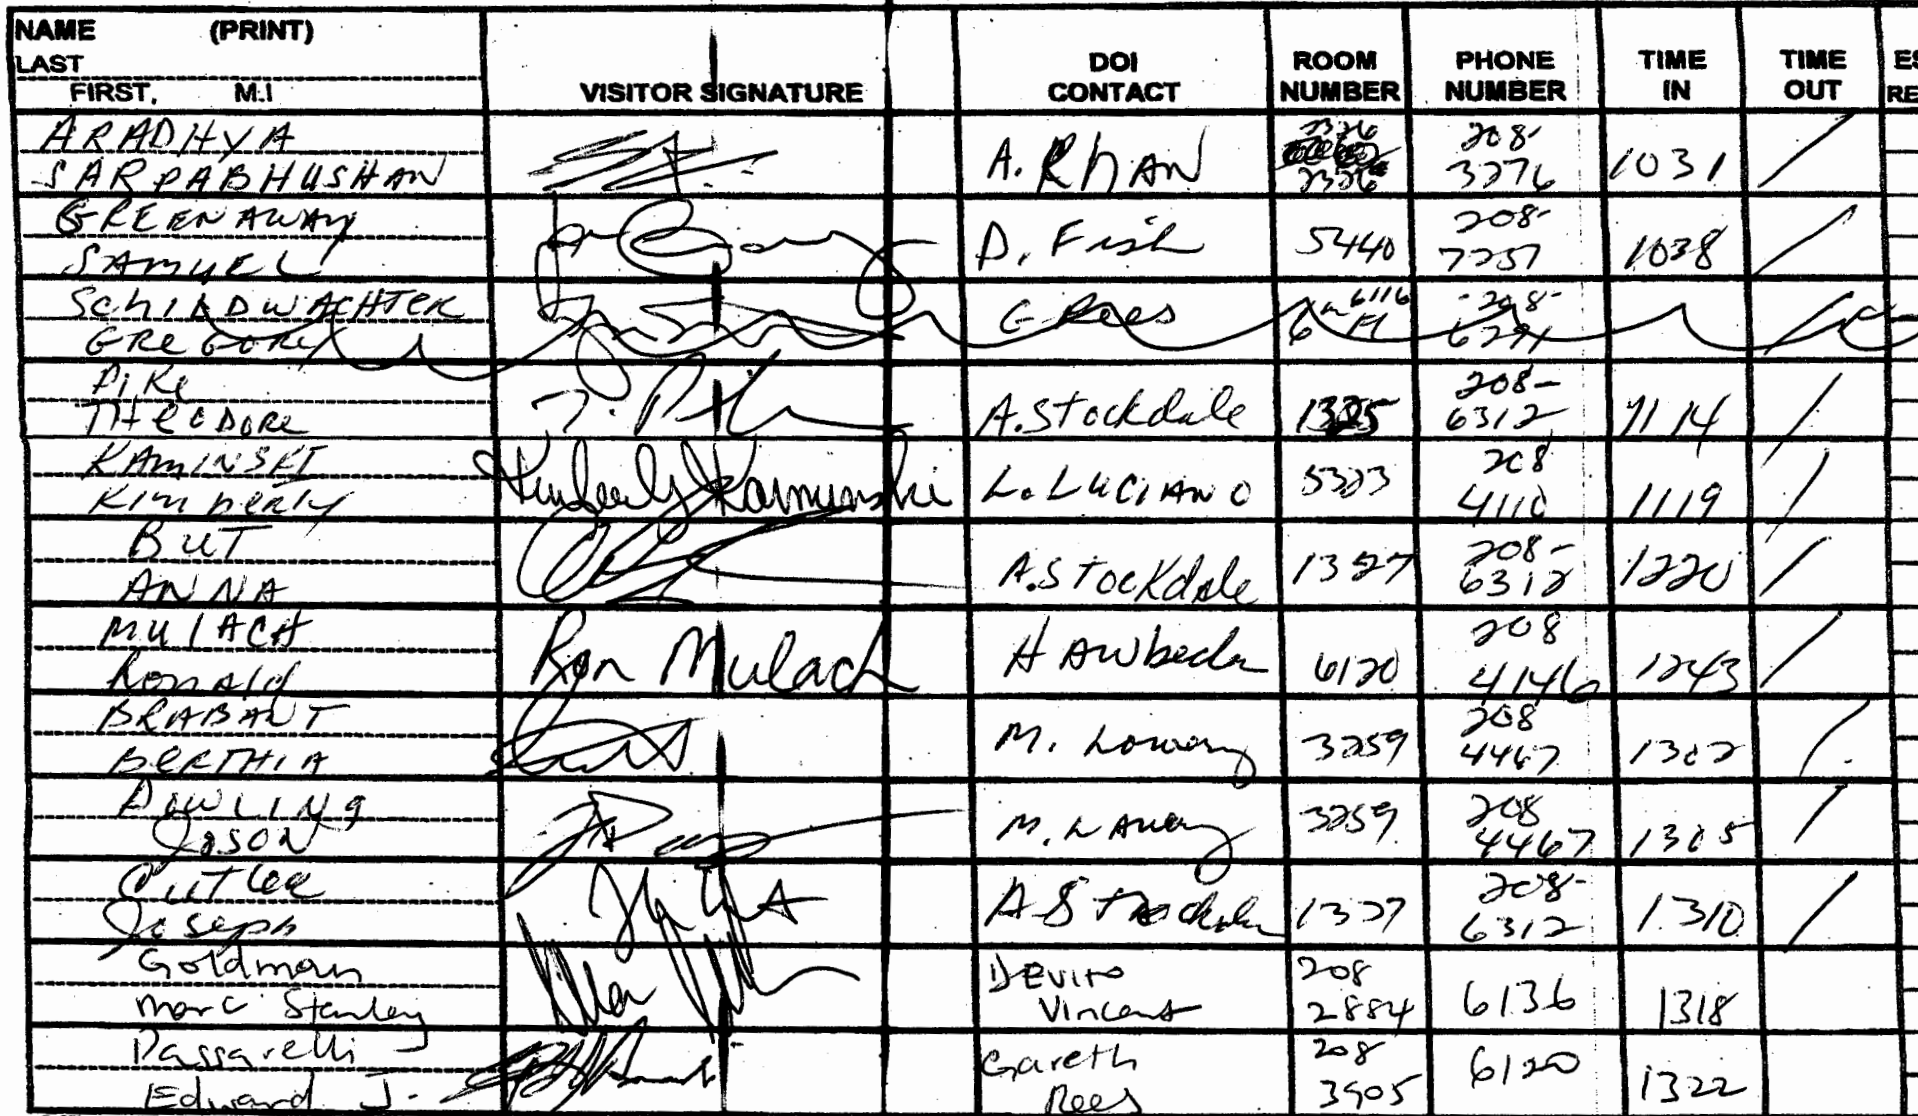 NAME (PRINT)
LAST
FIRST, M.I
VISITOR SIGNATURE
DOI
CONTACT
ROOM
NUMBER
PHONE
NUMBER
TIME
IN
TIME
OUT
ES
RE
ARADHYA
SARPABHUSHAN
A. KHAN
2326
2326
208-
3276
1031 /
GREENAWAY
SAMUEL
D. Fish
5440
208-
7257
1038 /
SCHILDWACHTER
GREGORY
G Rees
6116
6th Fl
208-
6291
/
PIKE
THEODORE
T. Pike
A. Stockdale
1325
208-
6312
1114 /
KAMINSKI
Kimberly
Kimberly Kaminski
L. LUCIANO
5323
208
4110
1119 /
BUT
ANNA
A. Stockdale
1327
208-
6312
1220 /
MULACH
Ronald
Ron Mulach
Hawbecker
6120
208
4146
1243 /
BRABANT
BERTHIA
M. Lowery
3259
208
4467
1302 /
DOWLING
JASON
M. Lowery
3259
208
4467
1305 /
Cutler
Joseph
A Stockdale
1327
208-
6312
1310 /
Goldman
Marc Stanley
DEVITO
Vincent
208
2884
6136
1318
Passarelli
Edward J.
Gareth
Rees
208
3905
6120
1322